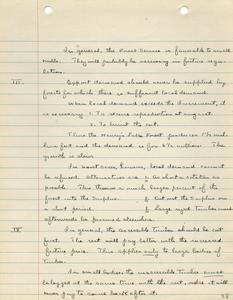 In general, the Forest Service is favorable to small
sales. They will probably be necessary in future regu-
lation.
III. Export demand should never be supplied by
forests for which there is sufficient local demand.
When local demand exceeds the increment, it
is necessary 1. To secure reproduction at any cost.
2. To limit the cut.
Thus the Henry's Lake Forest practices
feet and the demand is for 2 1/2 million. The
growth is slow.
In most cases, however, local demand cannot
be refused. Alternatives are a. as short a rotation as
possible. This throws a much larger percent of the
forest into the surplus. b. Cut out the surplus in
a short period. c. Large sized timber must
afterwards be procured elsewhere.
IV In general, the accessible timber should be cut
first. The rest will pay better with the increased
future price. This applies only to large bodies of
timber.
In small bodies the inaccessible timber must
be logged at the same time with the rest, unless it will
never pay to come back after it.